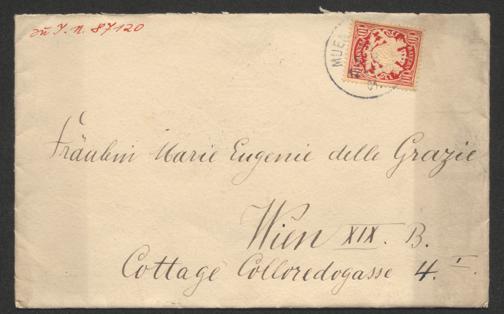 zu I. N. 87120
MUE
10 10
Fräulein Marie Eugenie delle Grazie
Wien XIX. B.
Cottage Colloredogasse 4. I.